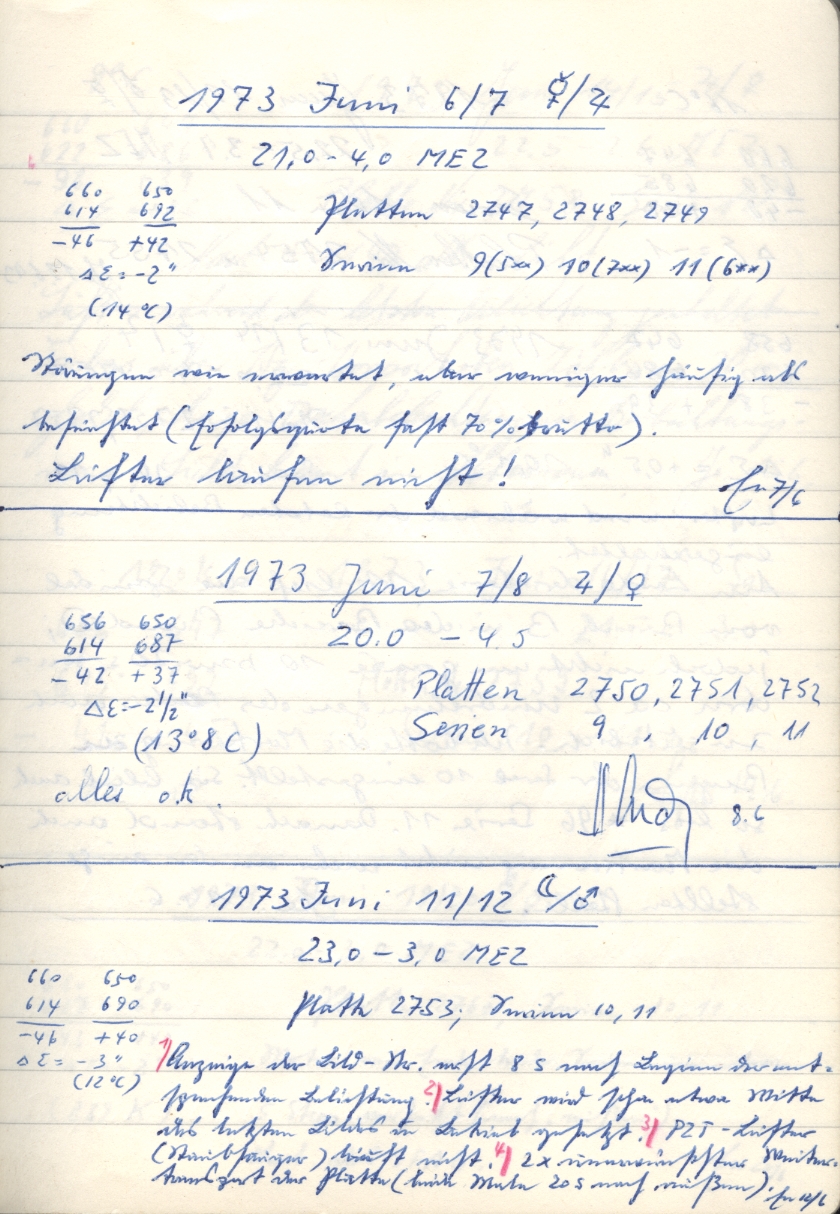 1973 Juni 6/7 ☿/♃
21,0 – 4,0 MEZ
660 650
614 692
–46 +42
Δε = –2"
(14°C)
Platten 2747, 2748, 2749
Serien 9(5xx) 10(7xx) 11(6xx)
Störungen wie erwartet, aber weniger häufig als
befürchtet (Erfolgsquote fast 70% brutto).
Lüfter laufen nicht!
7/6
1973 Juni 7/8 ♃/♀
20.0 – 4.5
656 650
614 687
–42 +37
Δε = –2 1/2"
(13°8 C)
Platten 2750, 2751, 2752
Serien 9, 10, 11
alles o.k.
8.6
1973 Juni 11/12 ☾/♂
23,0 – 3,0 MEZ
660 650
614 690
–46 +40
Δε = –3"
(12°C)
Platte 2753; Serien 10, 11
1) Anzeige der Bild-Nr. erst 8 s nach Beginn der ent-
sprechenden Belichtung. 2) Lüfter wird schon etwa Mitte
des letzten Bildes in Betrieb gesetzt. 3) PZT-Lüfter
(Staubsauger) läuft nicht. 4) 2x unerwünschter Weiter-
transport der Platte (beide Male 20 s nach außen). 12/6